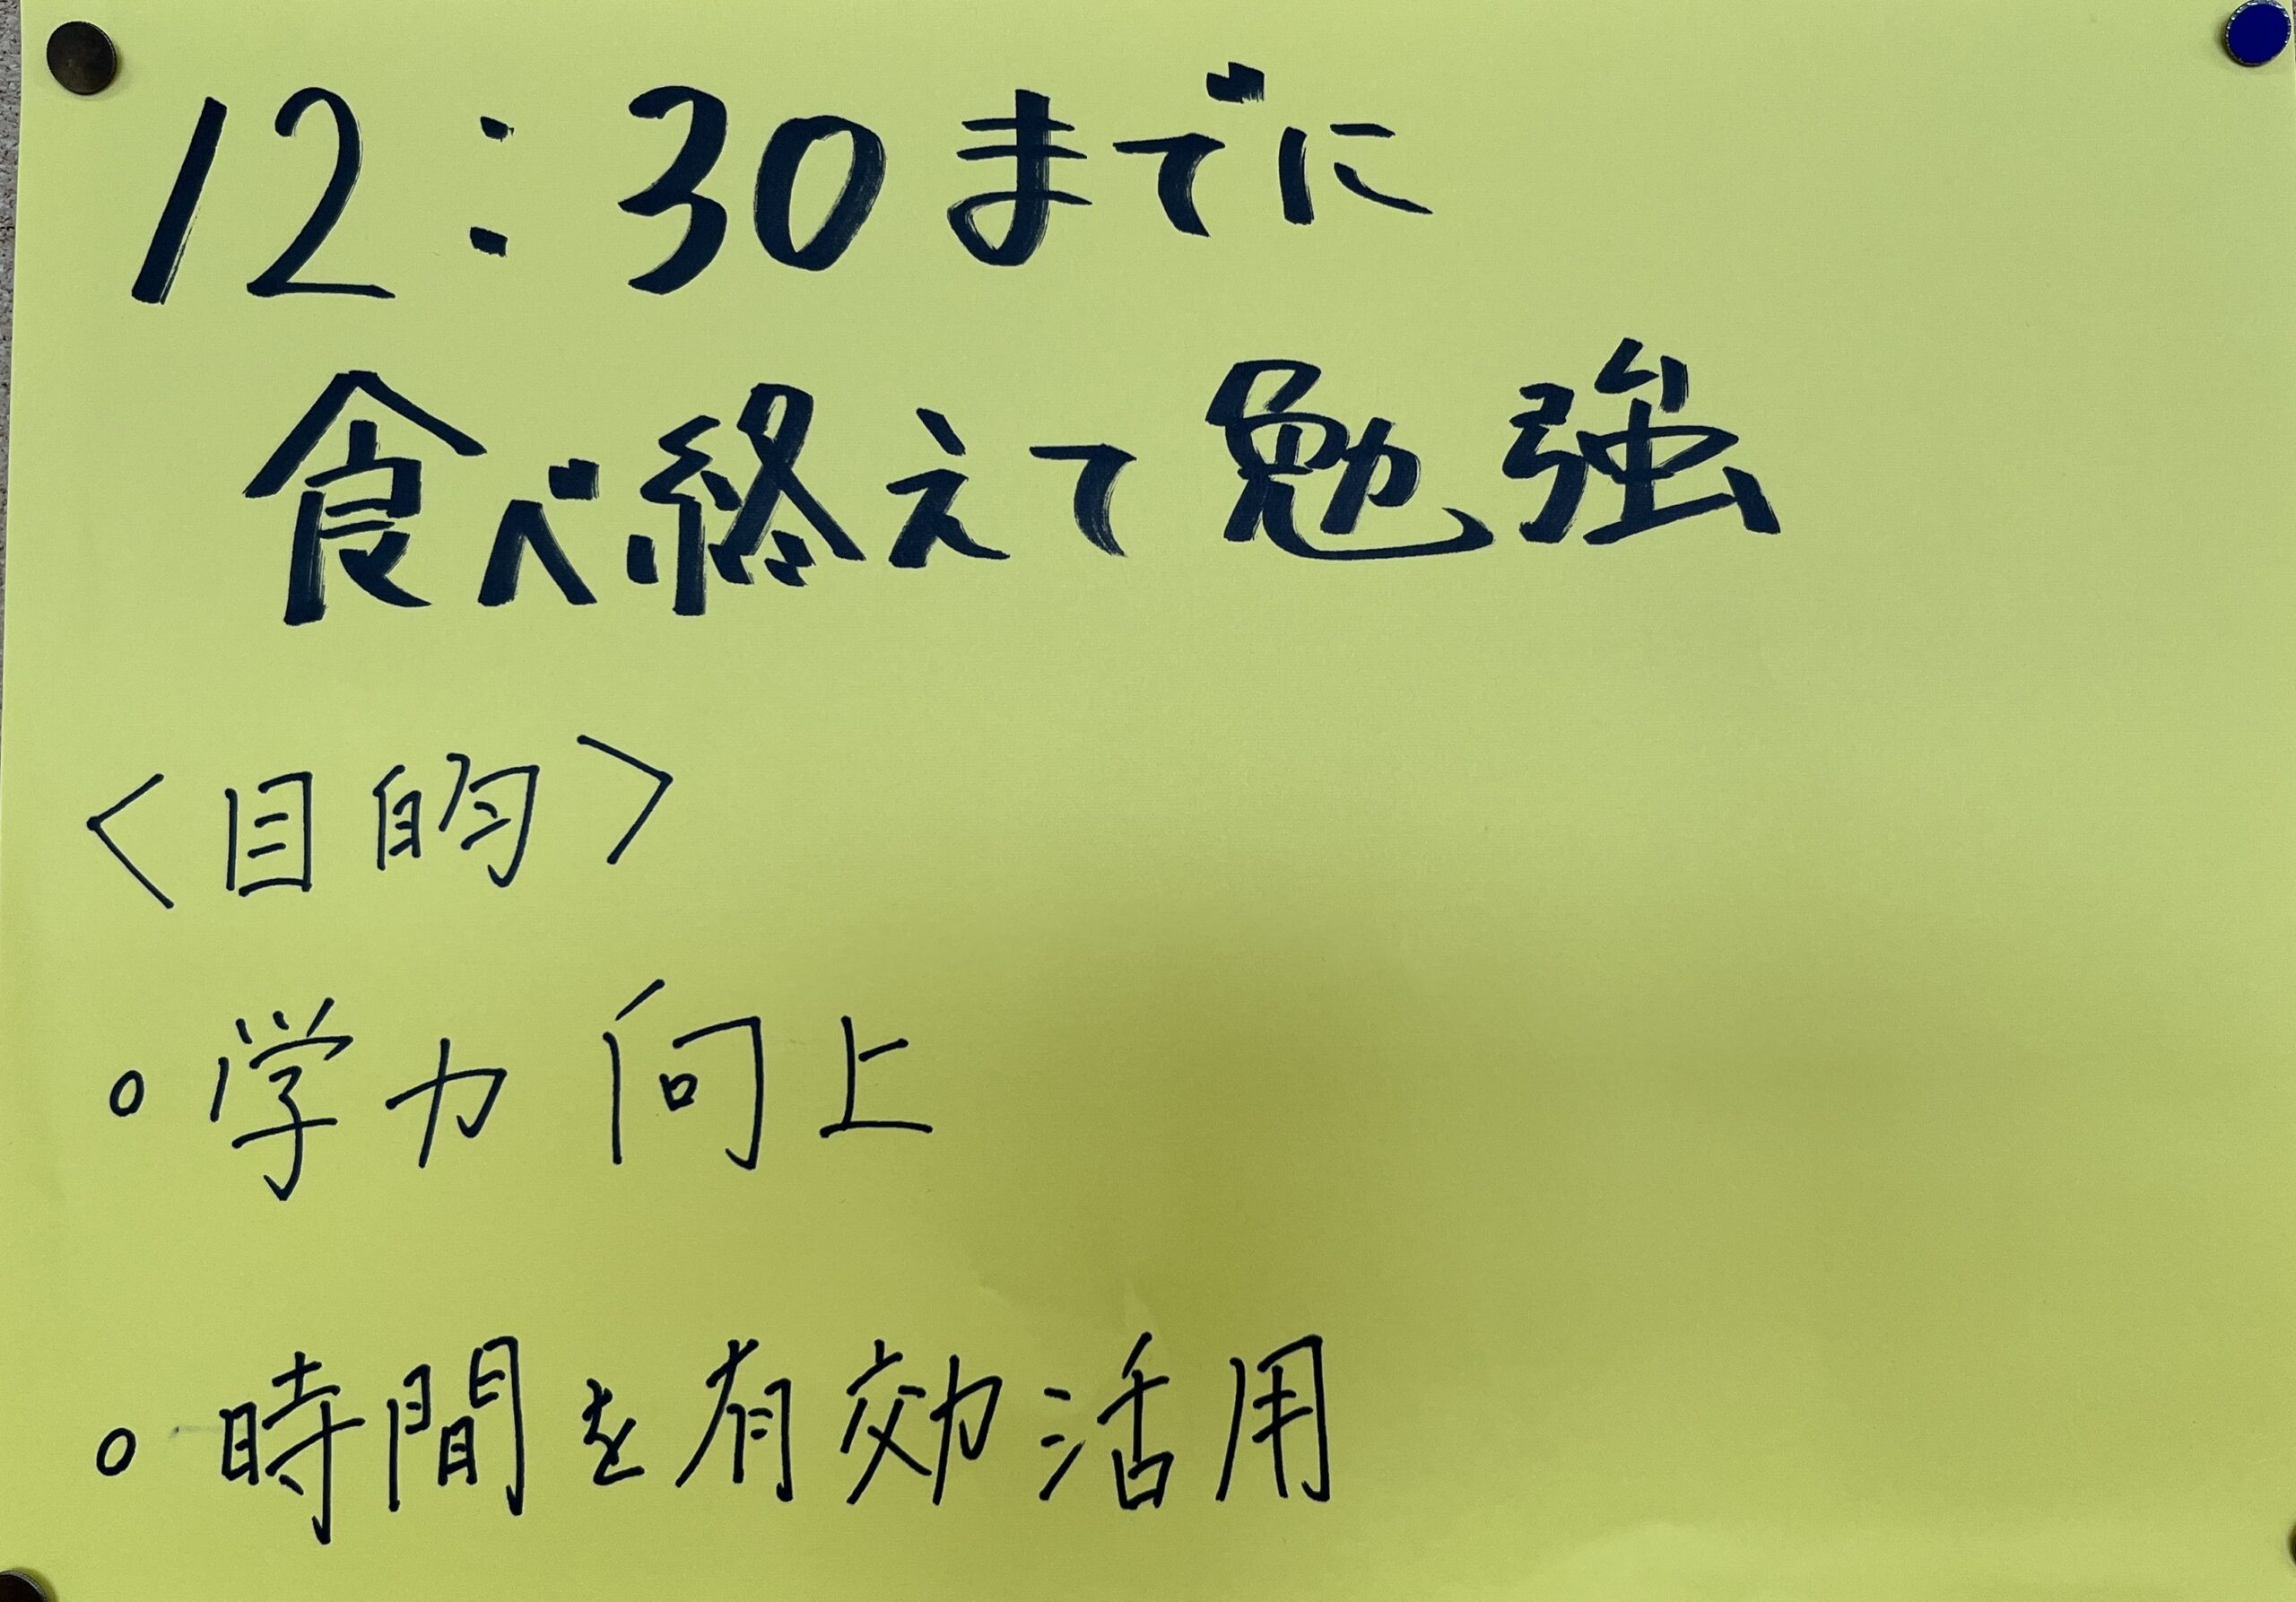 12:30までに
食べ終えて勉強
＜目的＞
○ 学力向上
○ 時間を有効活用